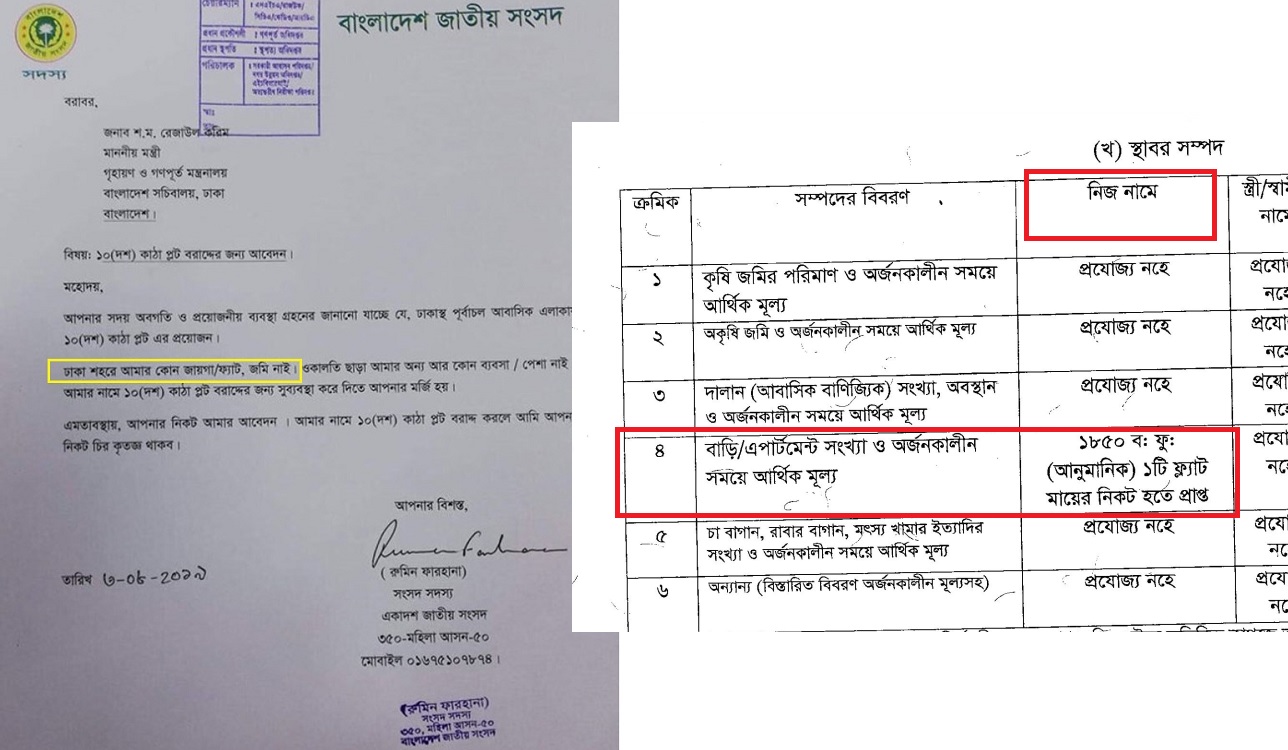 বাংলাদেশ
জাতীয় সংসদ
সদস্য
বাংলাদেশ জাতীয় সংসদ
চেয়ারম্যান
প্রধান প্রকৌশলী : গণপূর্ত অধিদপ্তর
প্রধান স্থপতি : স্থাপত্য অধিদপ্তর
পরিচালক :
বরাবর,
জনাব শ.ম. রেজাউল করিম
মাননীয় মন্ত্রী
গৃহায়ণ ও গণপূর্ত মন্ত্রনালয়
বাংলাদেশ সচিবালয়, ঢাকা
বাংলাদেশ।
বিষয়: ১০(দশ) কাঠা প্লট বরাদ্দের জন্য আবেদন।
মহোদয়,
আপনার সদয় অবগতি ও প্রয়োজনীয় ব্যবস্থা গ্রহনের জানানো যাচ্ছে যে, ঢাকাস্থ পূর্বাচল আবাসিক এলাকায়
১০(দশ) কাঠা প্লট এর প্রয়োজন।
ঢাকা শহরে আমার কোন জায়গা/ফ্যাট, জমি নাই। ওকালতি ছাড়া আমার অন্য আর কোন ব্যবসা / পেশা নাই
আমার নামে ১০(দশ) কাঠা প্লট বরাদ্দের জন্য সুব্যবস্থা করে দিতে আপনার মর্জি হয়।
এমতাবস্থায়, আপনার নিকট আমার আবেদন । আমার নামে ১০(দশ) কাঠা প্লট বরাদ্দ করলে আমি আপন
নিকট চির কৃতজ্ঞ থাকব।
আপনার বিশস্ত,
( রুমিন ফারহানা)
তারিখ ৩-০৮-২০১৯
সংসদ সদস্য
একাদশ জাতীয় সংসদ
৩৫০-মহিলা আসন-৫০
মোবাইল ০১৬৭৫১০৭৮৭৪।
(রুমিন ফারহানা)
সংসদ সদস্য
৩৫০, মহিলা আসন-৫০
বাংলাদেশ জাতীয় সংসদ
(খ) স্থাবর সম্পদ
ক্রমিক সম্পদের বিবরণ নিজ নামে স্ত্রী/স্বা
নামে
১ কৃষি জমির পরিমাণ ও অর্জনকালীন সময়ে প্রযোজ্য নহে প্রযো
আর্থিক মূল্য নহে
২ অকৃষি জমি ও অর্জনকালীন সময়ে আর্থিক মূল্য প্রযোজ্য নহে প্রযো
নহে
৩ দালান (আবাসিক বাণিজ্যিক) সংখ্যা, অবস্থান প্রযোজ্য নহে প্রযো
ও অর্জনকালীন সময়ে আর্থিক মূল্য নহে
৪ বাড়ি/এপার্টমেন্ট সংখ্যা ও অর্জনকালীন ১৮৫০ ব: ফু: প্রযো
সময়ে আর্থিক মূল্য (আনুমানিক) ১টি ফ্ল্যাট নহে
মায়ের নিকট হতে প্রাপ্ত
৫ চা বাগান, রাবার বাগান, মৎস্য খামার ইত্যাদির প্রযোজ্য নহে প্রযো
সংখ্যা ও অর্জনকালীন সময়ে আর্থিক মূল্য নহে
৬ অন্যান্য (বিস্তারিত বিবরণ অর্জনকালীন মূল্যসহ) প্রযোজ্য নহে প্রযো
নহে